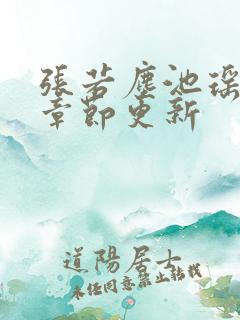 張若塵池瑤
章節更新
道陽居士
未經同意禁止轉載